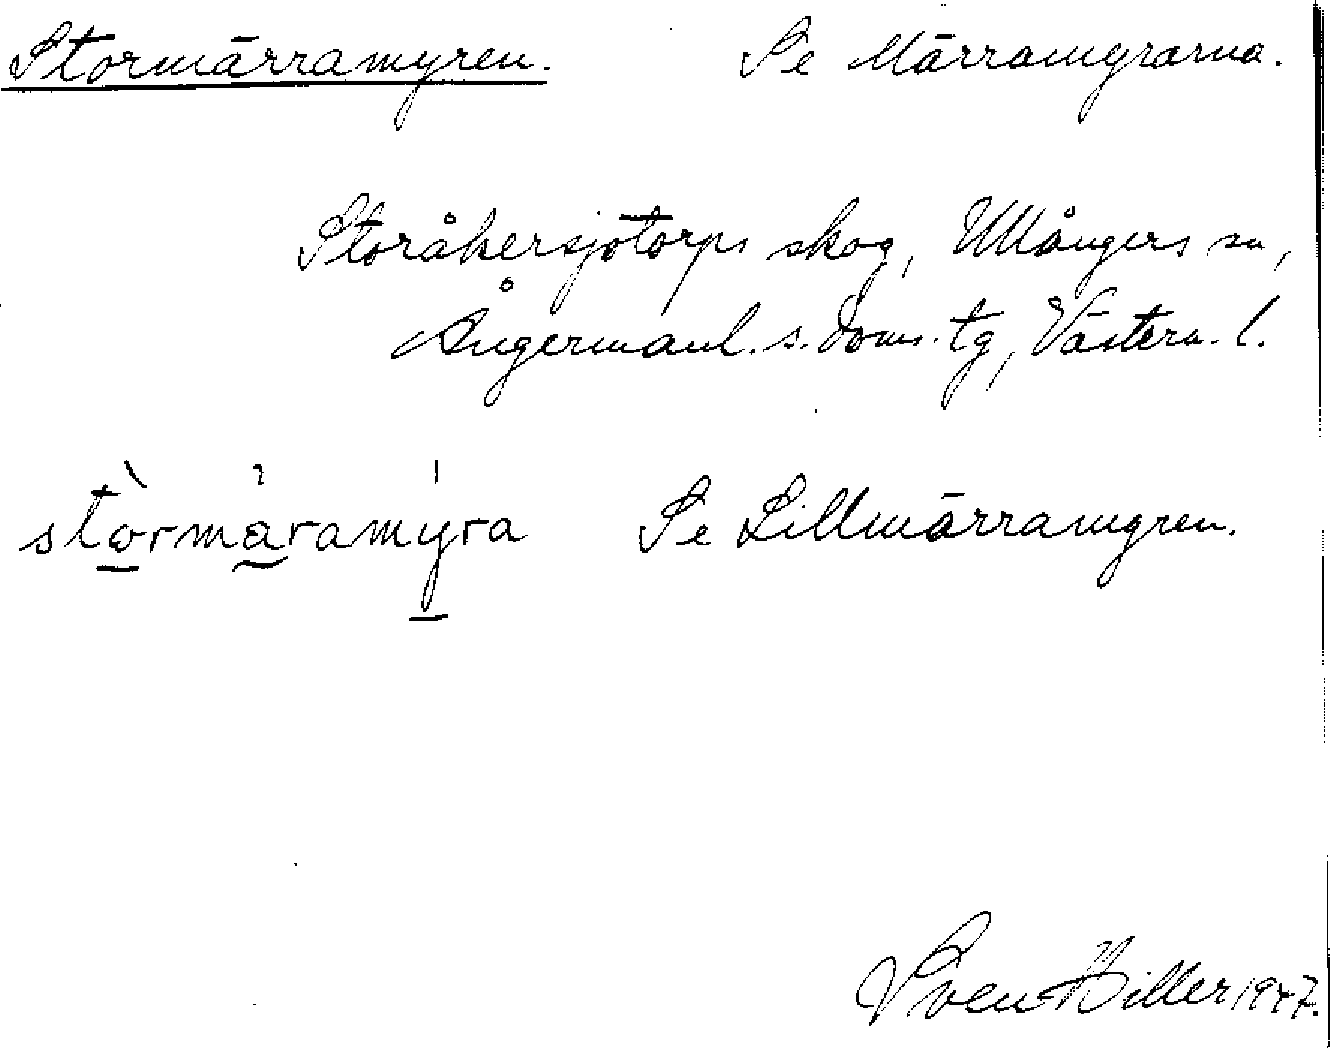 Stormärramyren. Se Märramyrarna.
Storåkersjötorps skog, Ullångers sn,
Ångermanl. s. doms. tg, Västern. l.
stòrmäramýra Se Lillmärramyren.
Sven Hiller 1947.